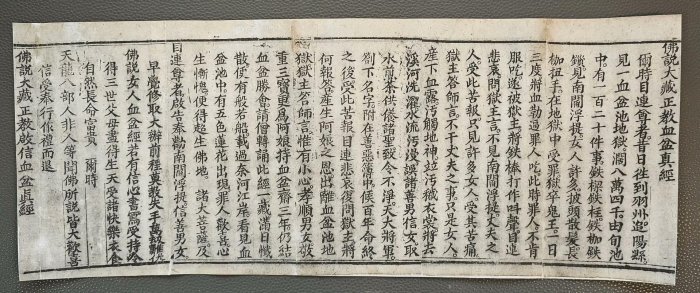 佛說大藏正教血盆真經
爾時目連尊者昔日往到羽州追陽縣
見一血盆池地獄濶八萬四千由旬池
中有一百二十件事鐵樑鐵柱鐵枷鐵
鎖見南閻浮提女人許多披頭散髮長
枷杻手在地獄中受罪獄卒鬼王一日
三度將血勒逼罪人吃此時罪人不肯
服吃遂被獄主將鐵棒打作叫聲目連
悲哀問獄主言不見南閻浮提丈夫之
人受此苦報只見許多女人受其苦痛
獄主答師言不干丈夫之事只是女人
產下血露污觸地神並污穢衣裳將去
溪河洗濯水流污漫誤諸善男信女取
水煎茶供養諸聖致令不淨天大將軍
劄下名字附在善惡簿中候百年命終
之後受此苦報目連悲哀復問獄主將
何報答產生阿娘之恩出離血盆池地
獄獄主答師言惟有小心孝順男女敬
重三寶更為阿娘持血盆齋三年仍結
血盆勝會請僧轉誦此經一藏滿日懺
散便有般若船載過奈河江岸看見血
盆池中有五色蓮花出現罪人歡喜心
生慚愧便得超生佛地 諸大菩薩及
目連尊者啟告奉勸南閻浮提信善男女
早覺修取大辦前程莫教失手萬劫難逢
佛說女人血盆經若有信心書寫受持令
得三世父母盡得生天受諸快樂衣食
自然長命富貴 爾時
天龍八部人非人等聞佛所說皆大歡喜
信受奉行作禮而退
佛說大藏正教啟信血盆真經